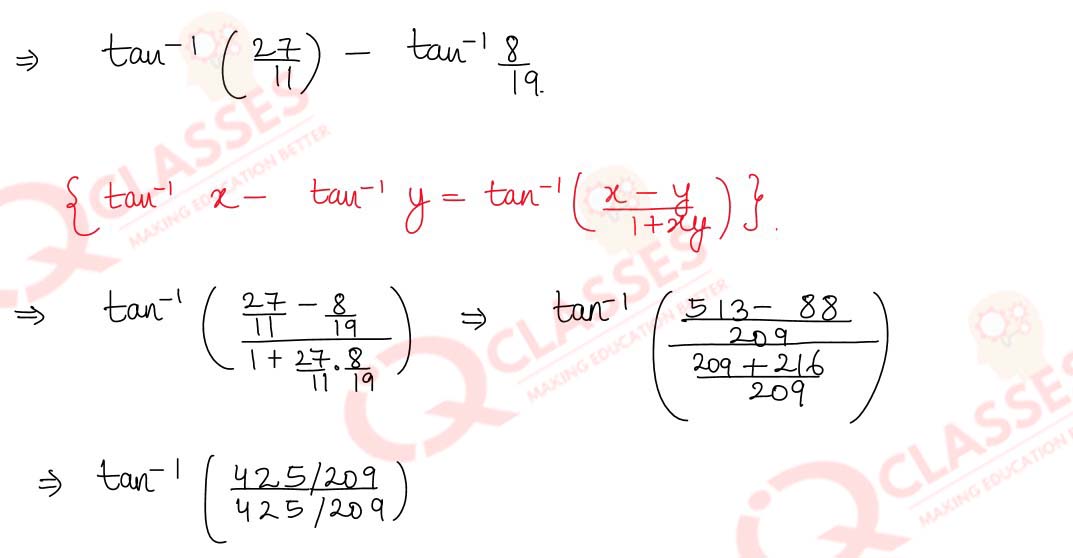 ⇒ tan⁻¹ (27/11) − tan⁻¹ 8/19.
{ tan⁻¹ x − tan⁻¹ y = tan⁻¹ (x − y / 1 + xy) }.
⇒ tan⁻¹ (27/11 − 8/19 / 1 + 27/11 . 8/19) ⇒ tan⁻¹ (513 − 88 / 209 / 209 + 216 / 209)
⇒ tan⁻¹ (425/209 / 425/209)
CLASSES
MAKING EDUCATION BETTER
CLASSES
MAKING EDUCATION BETTER
CLASSES
MAKING EDUCATION